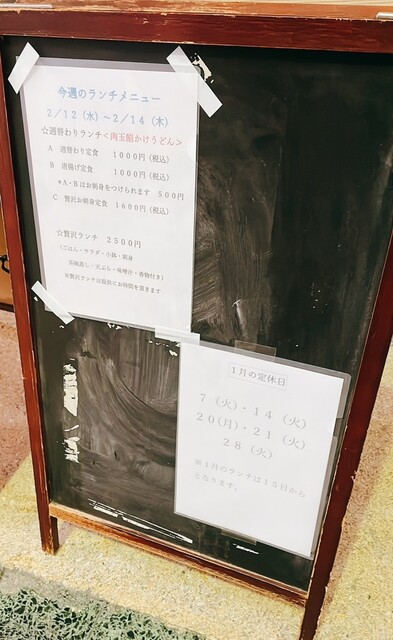 今週のランチメニュー
2/12（水）～2/14（木）
☆週替わりランチ＜肉玉餡かけうどん＞
A 週替わり定食 1000円（税込）
B 唐揚げ定食 1000円（税込）
＊A・Bはお刺身をつけられます 500円
C 贅沢お刺身定食 1600円（税込）
☆贅沢ランチ 2500円
（ごはん・サラダ・小鉢・刺身
茶碗蒸し・天ぷら・味噌汁・香物付き）
※贅沢ランチは提供にお時間を頂きます
1月の定休日
7（火）・14（火）
20(月)・21（火）
28（火）
※1月のランチは15日から
となります。